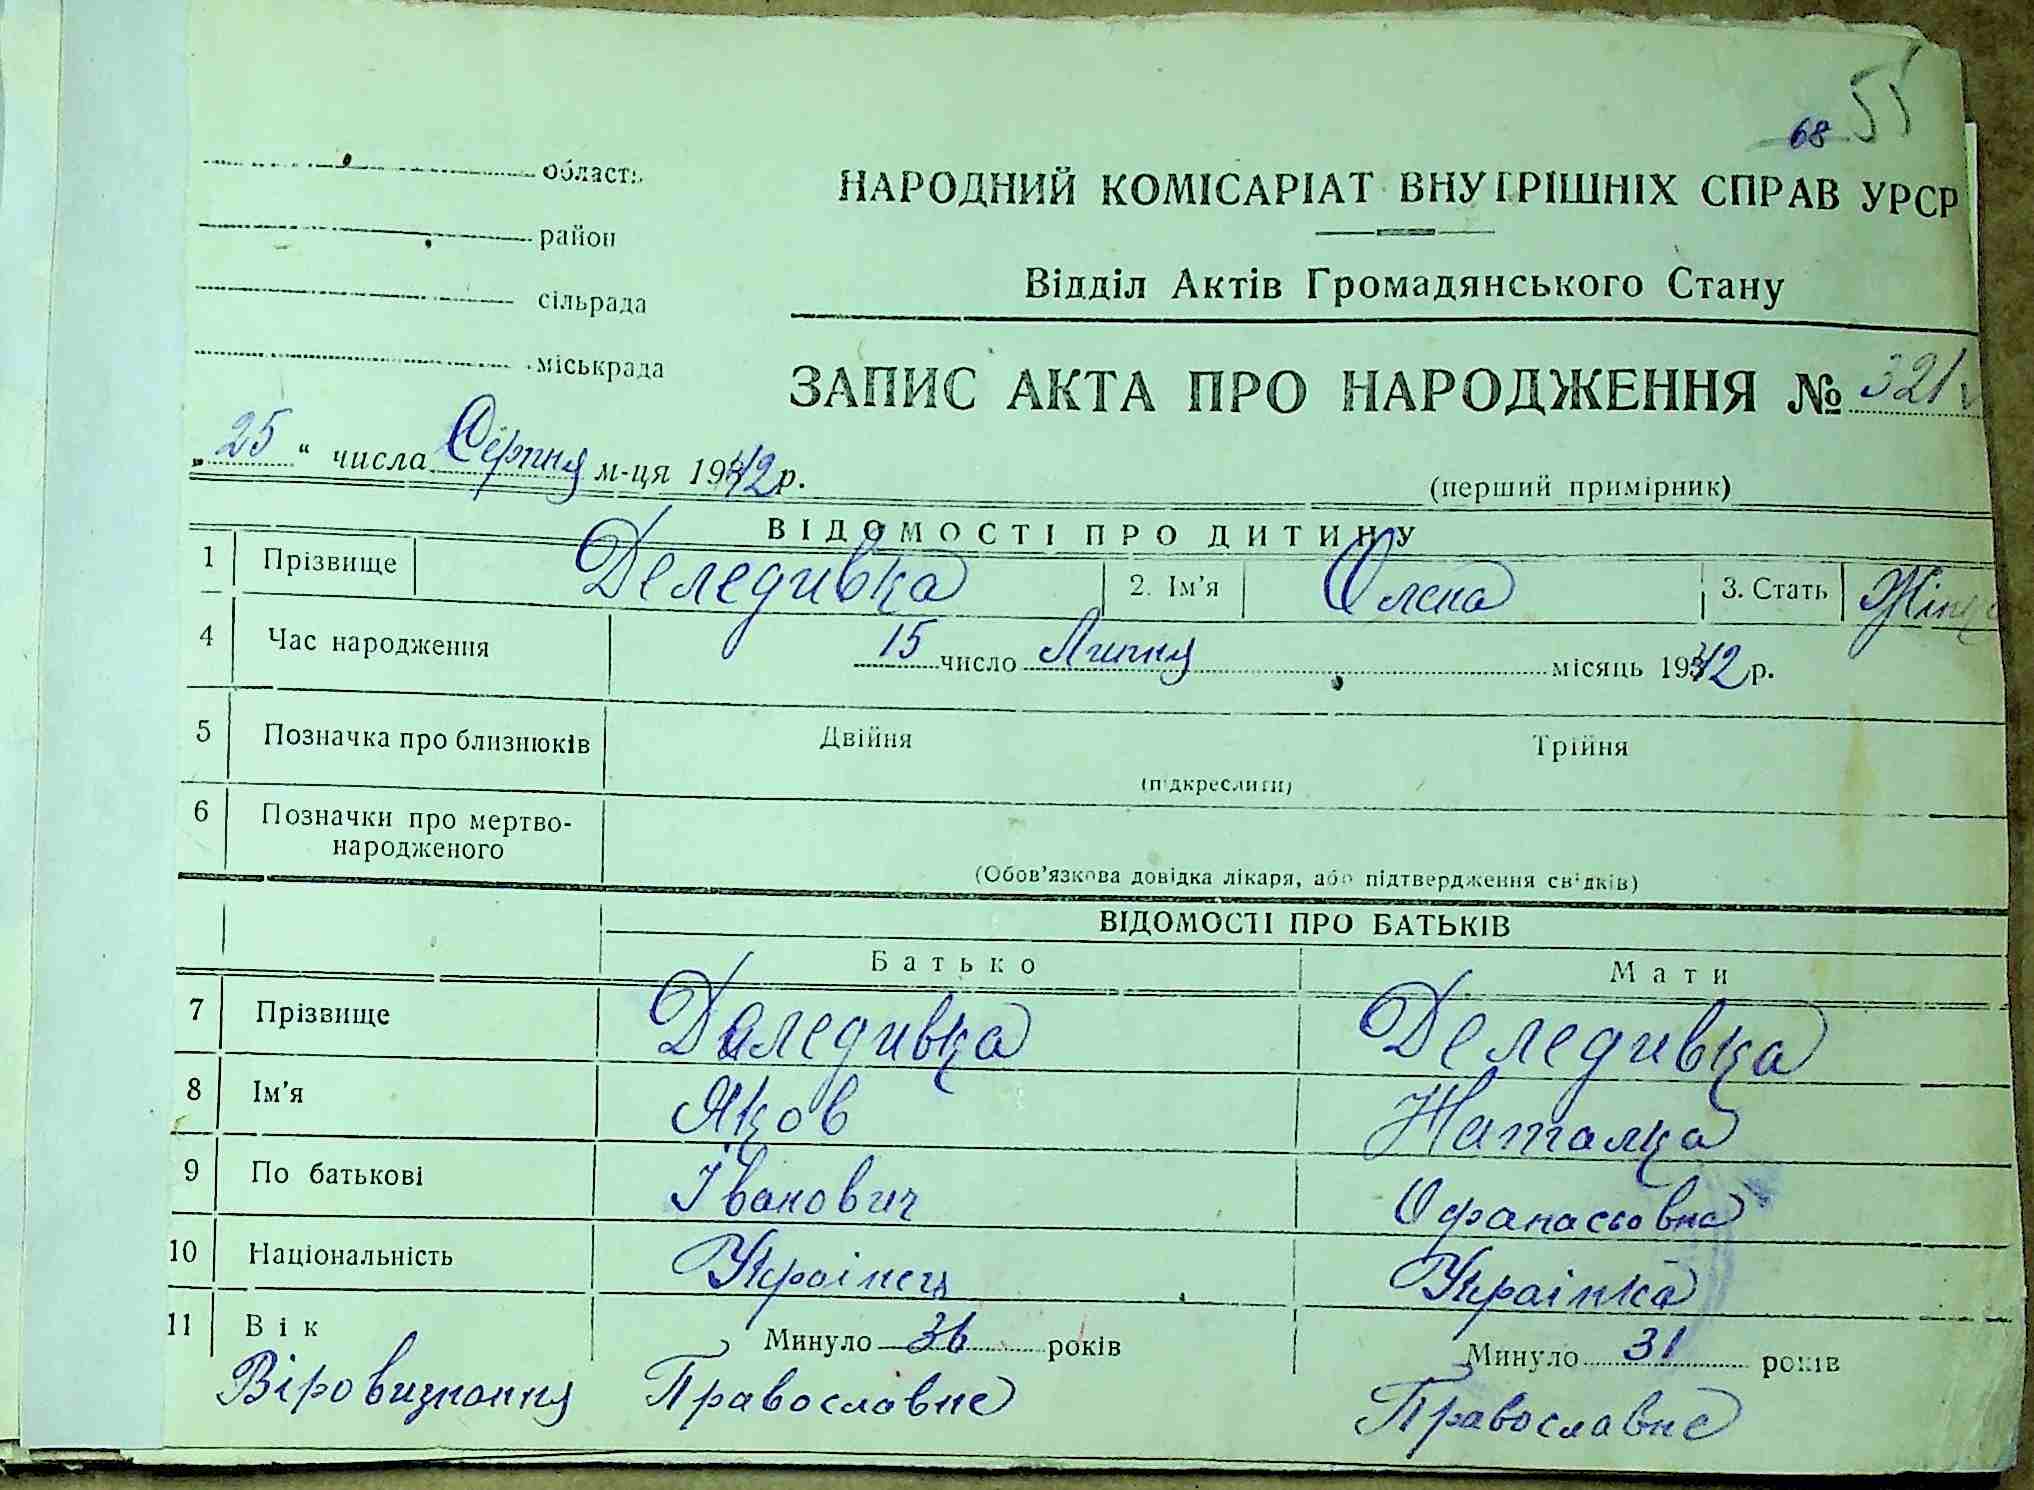 68 51
область
район
сільрада
міськрада
НАРОДНИЙ КОМІСАРІАТ ВНУТРІШНІХ СПРАВ УРСР
Відділ Актів Громадянського Стану
ЗАПИС АКТА ПРО НАРОДЖЕННЯ № 321
„25“ числа Серпня м-ця 1942 р.
(перший примірник)
ВІДОМОСТІ ПРО ДИТИНУ
1 Прізвище Деледивка 2. Ім'я Олена 3. Стать
4 Час народження 15 число Липня місяць 1942 р.
5 Позначка про близнюків Двійня Трійня
(підкреслити)
6 Позначки про мертво-
народженого
(Обов'язкова довідка лікаря, або підтвердження свідків)
ВІДОМОСТІ ПРО БАТЬКІВ
Батько Мати
7 Прізвище Деледивка Деледивка
8 Ім'я Яков Наталка
9 По батькові Іванович Офанасьовна
10 Національність Українец Українка
11 Вік Минуло 36 років Минуло 31 років
Віровизнання Православне Православне